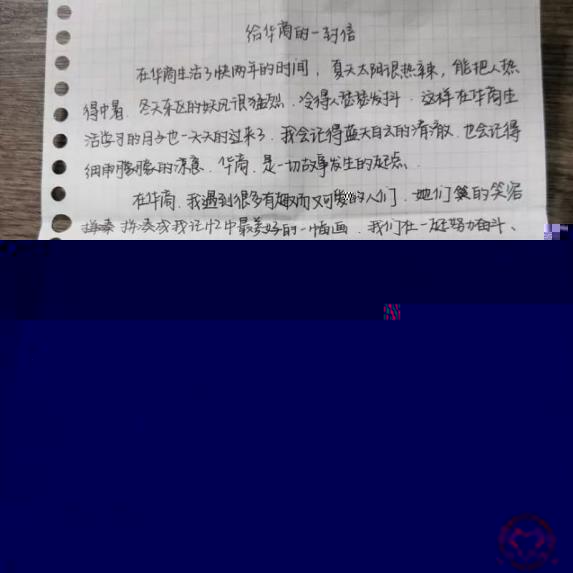 给华商的一封信
在华商生活了快两年的时间，夏天太阳很热辣，能把人热
得中暑，冬天东区的妖风很猛烈，冷得人瑟瑟发抖，这样在华商生
活学习的日子也一天天的过来了，我会记得蓝天白云的清澈，也会记得
细雨朦朦的凉意，华商，是一切故事发生的起点。
在华商，我遇到很多有趣而又可爱的人们，她们笑的笑容
拼凑成我记忆中最美好的一幅画，我们在一起努力奋斗、